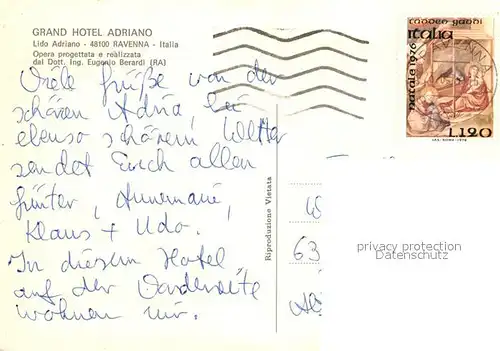 GRAND HOTEL ADRIANO
Lido Adriano - 48100 RAVENNA - Italia
Opera progettata e realizzata
dal Dott. Ing. Eugenio Berardi (RA)
Viele Grüße von der
schönen Adria, bei
ebenso schönem Wetter
sendet Euch allen
Günter, Annemarie,
Klaus + Udo.
In diesem Hotel
auf der Vorderseite
wohnen wir.
Riproduzione Vietata
taddeo gaddi
italia
natale 1976
L.120
RAVENNA
63
privacy protection
Datenschutz